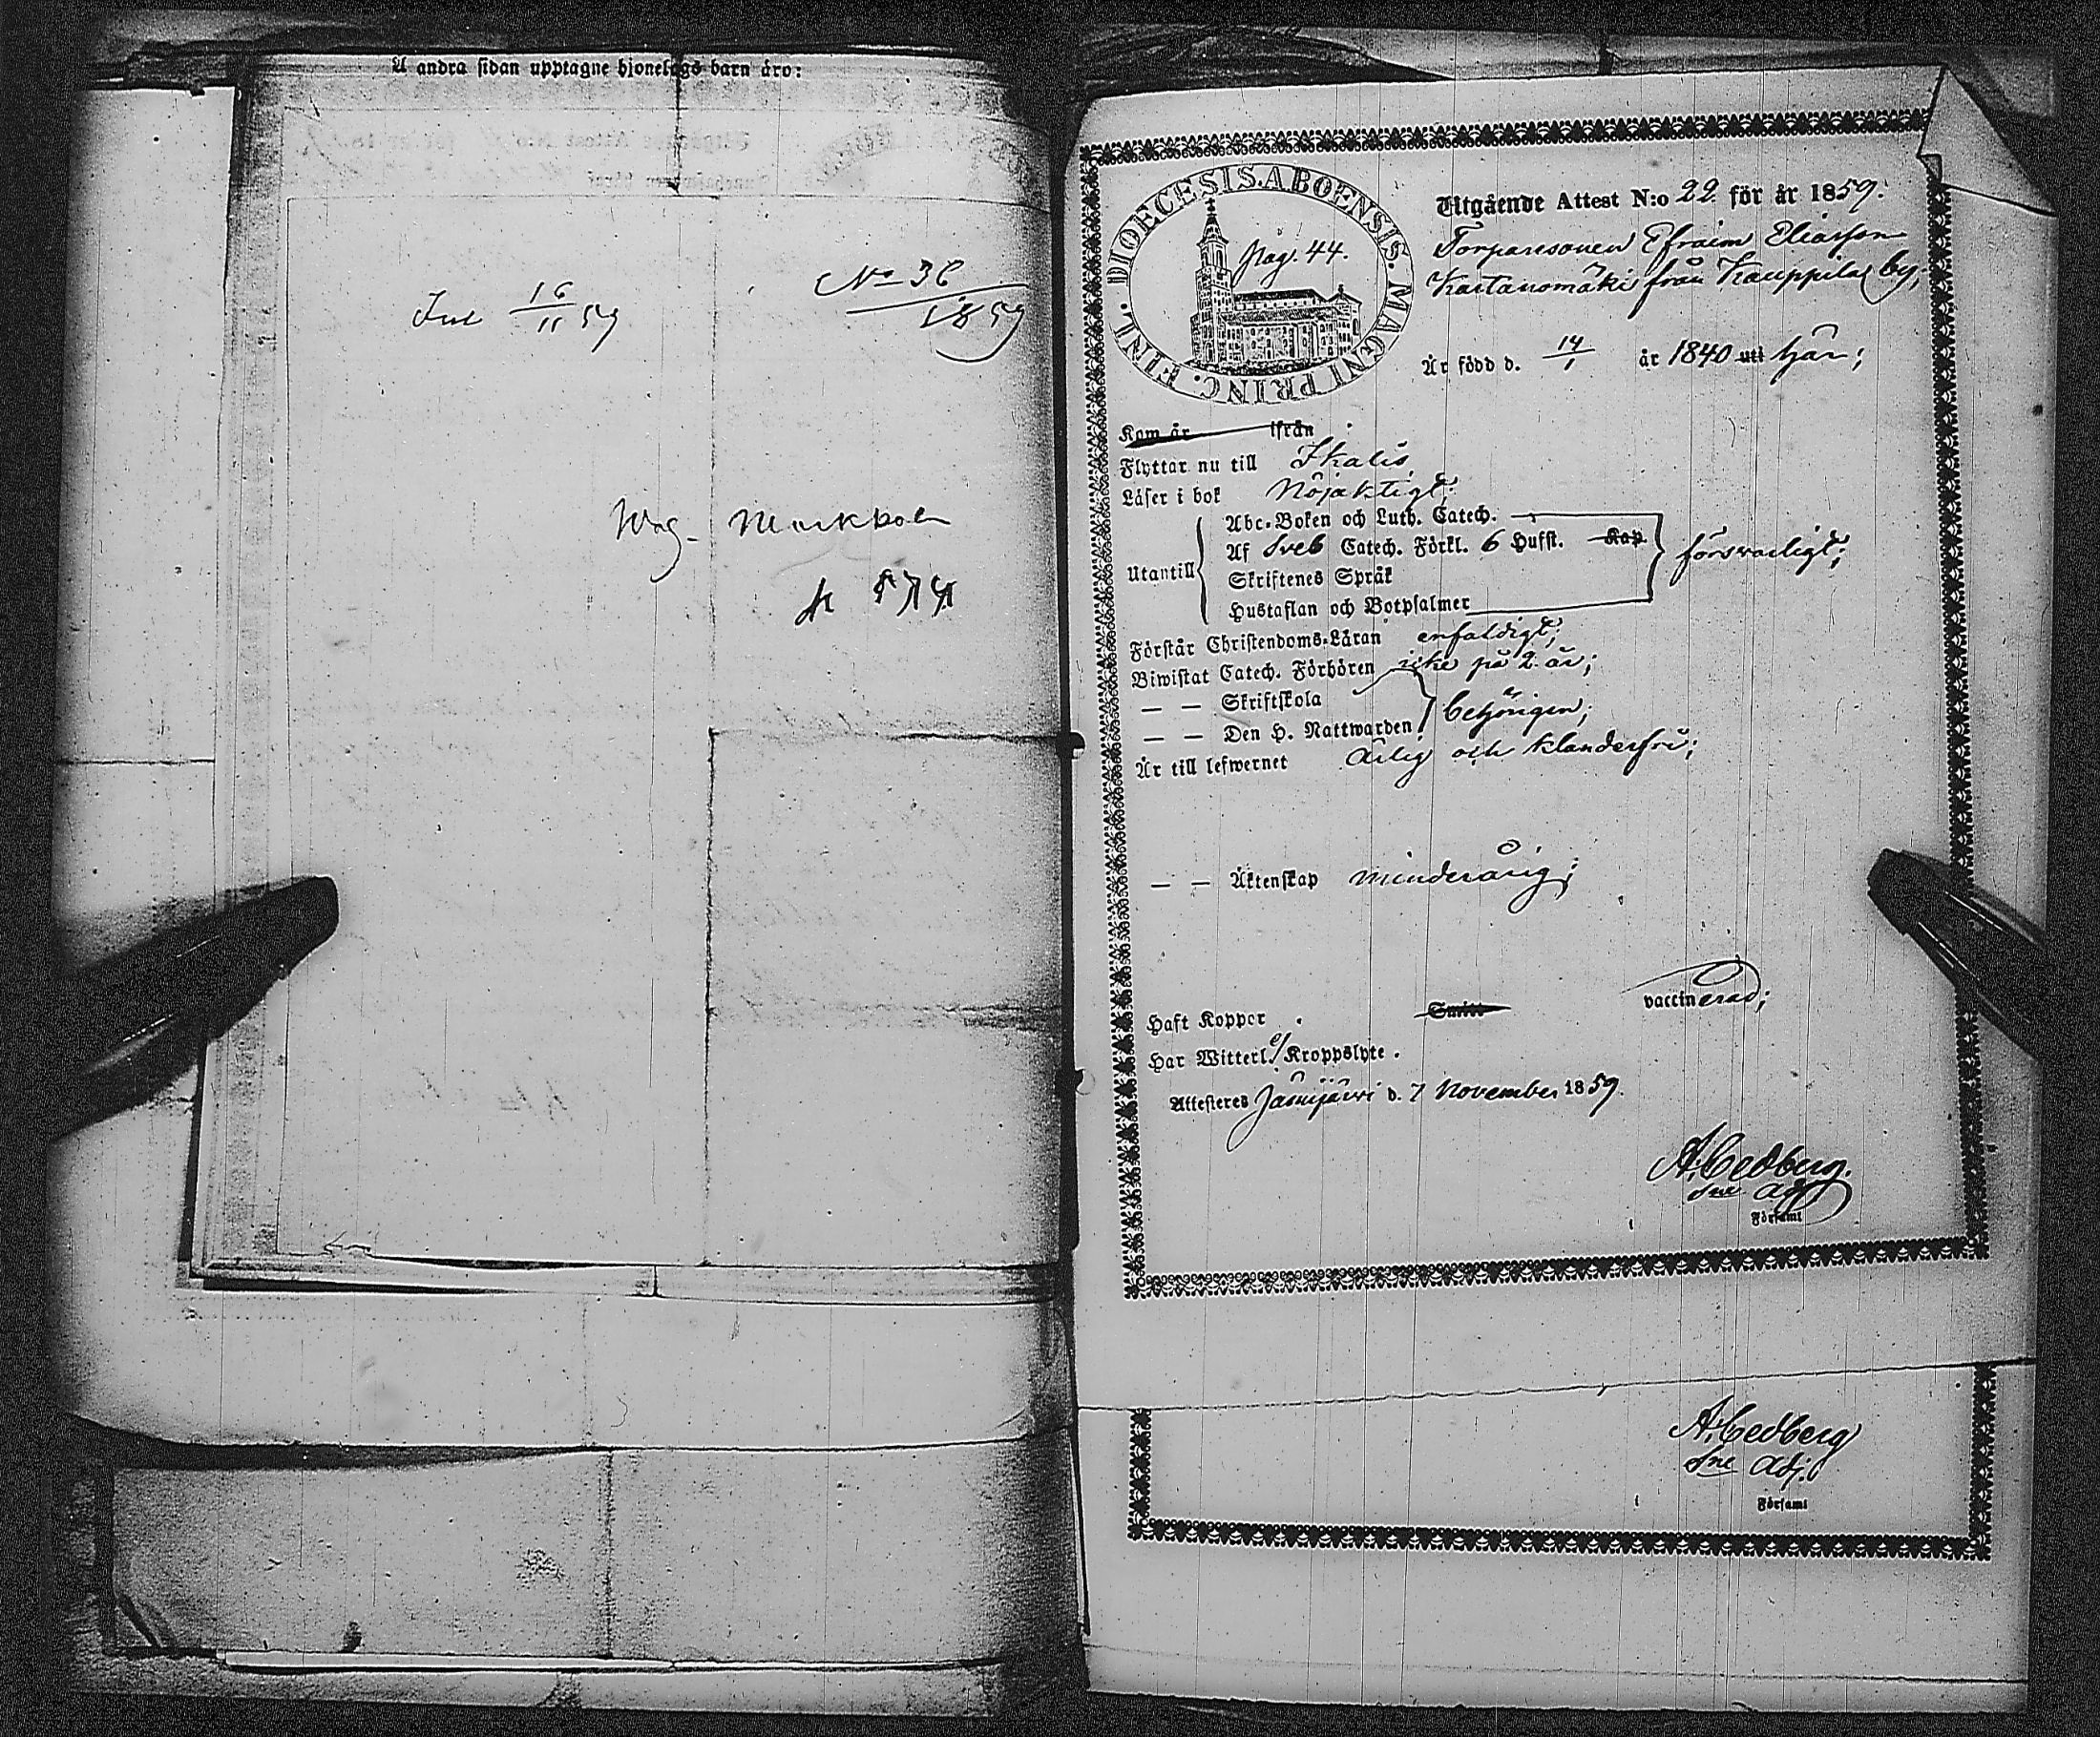 Å andra sidan upptagne hjonelags barn äro:
Inl 16/11 59
No 36
1859
Utgående Attest N:o 22 för år 1859.
DIOECESIS. ABOENSIS. MAGNI PRINC. FINL.
Pag. 44.
Torparesonen Efraim Eliasson
Kartanomäki från Kauppila by,
Är född d. 14/1 år 1840 uti här;
Kom år ifrån
Flyttar nu till Ikalis,
Läser i bok Nöjaktigt;
Utantill
Abc-Boken och Luth. Catech.
Af Sveb Catech. Förkl. 6 Hufst. Kap.
Skriftenes Språk
Hustaflan och Botpsalmer
försvarligt;
Förstår Christendoms-Läran enfaldigt;
Biwistat Catech. Förhören icke på 2 år;
— — Skriftskola
— — Den H. Nattwarden
behörigen;
Är till lefwernet Ärlig och klanderfri;
— — Äktenskap minderårig;
Haft Koppor Smitt vaccinerad;
Har Witterl. Kroppslyte.
Attesteres Jämijärvi d. 7 November 1859.
A. Cedberg.
Sne Adj
i Församl
A. Cedberg
Sne Adj.
i Församl